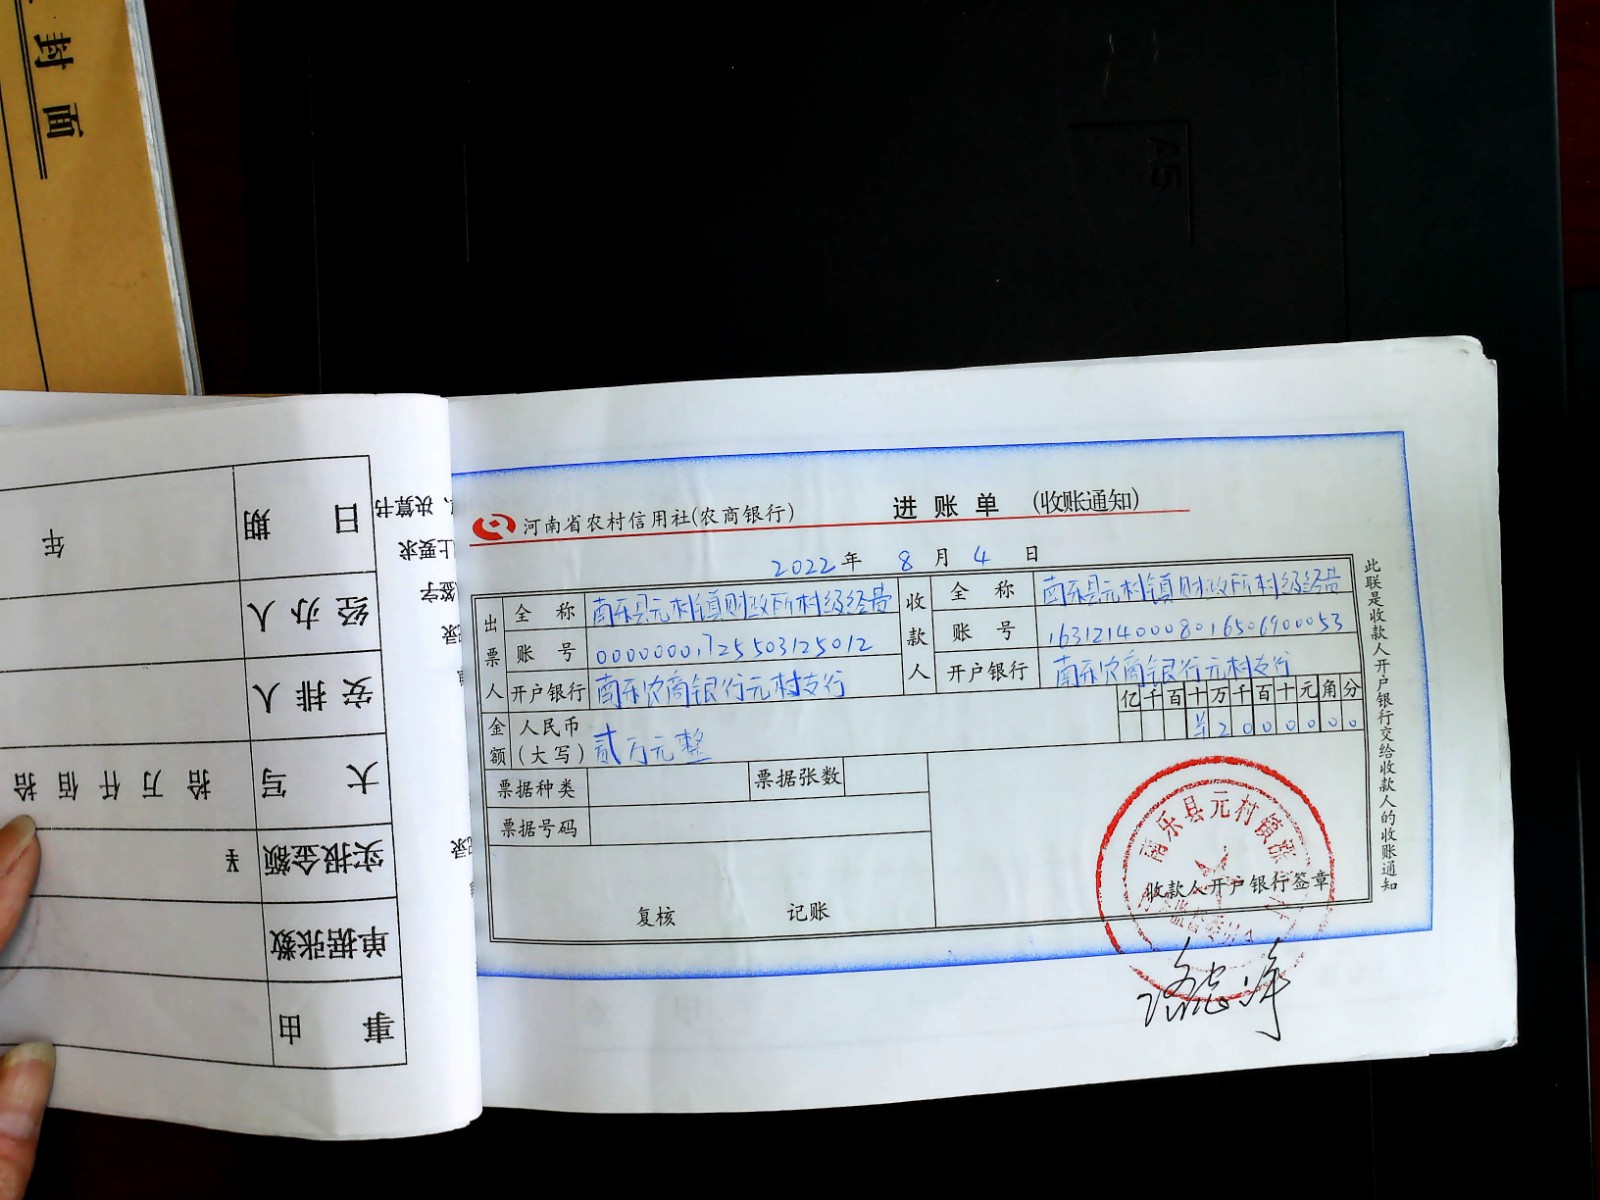 封面
河南省农村信用社(农商银行) 进账单 (收账通知)
2022年 8月 4日
出票人 全称 南乐县元村镇财政所村级经费 收款人 全称 南乐县元村镇财政所村级经费
账号 00000001725503125012 账号 16312140008016506900053
开户银行 南乐农商银行元村支行 开户银行 南乐农商银行元村支行
金额 人民币(大写) 贰万元整 亿千百十万千百十元角分
¥2000000
票据种类 票据张数
票据号码
复核 记账
收款人开户银行签章
此联是收款人开户银行交给收款人的收账通知
南乐县元村镇
监督委员会
事由
单据张数
实报金额 ¥
大写 拾万仟佰拾
安排人
经办人
日期 年
决算书
上要求
签字
AS